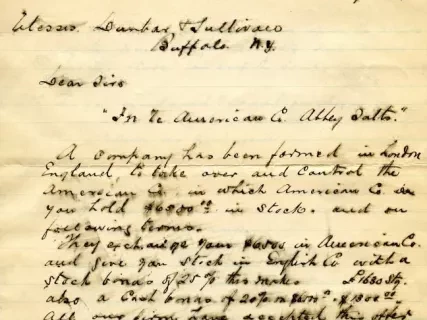 Messrs. Dunbar & Sullivan
Buffalo N.Y.
Dear Sirs
"In re American Co. Abbey Salts."
A company has been formed in London
England, to take over and control the
American Co. in which American Co.
you hold in stock. and on
following terms.
They exchange your $6500 in American Co.
and give you stock in English Co with a
stock bonus of 25% this makes £1680 Stg.
also a Cash bonus of 20% on
All our have accepted this offer